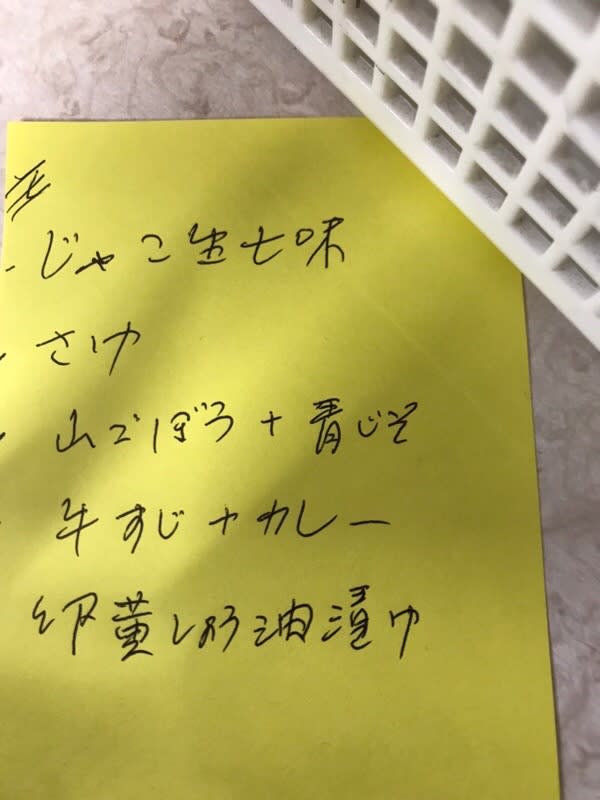 - じゃこ生七味
さけ
山ごぼう+青じそ
牛すじ+カレー
卵黄しょう油漬け